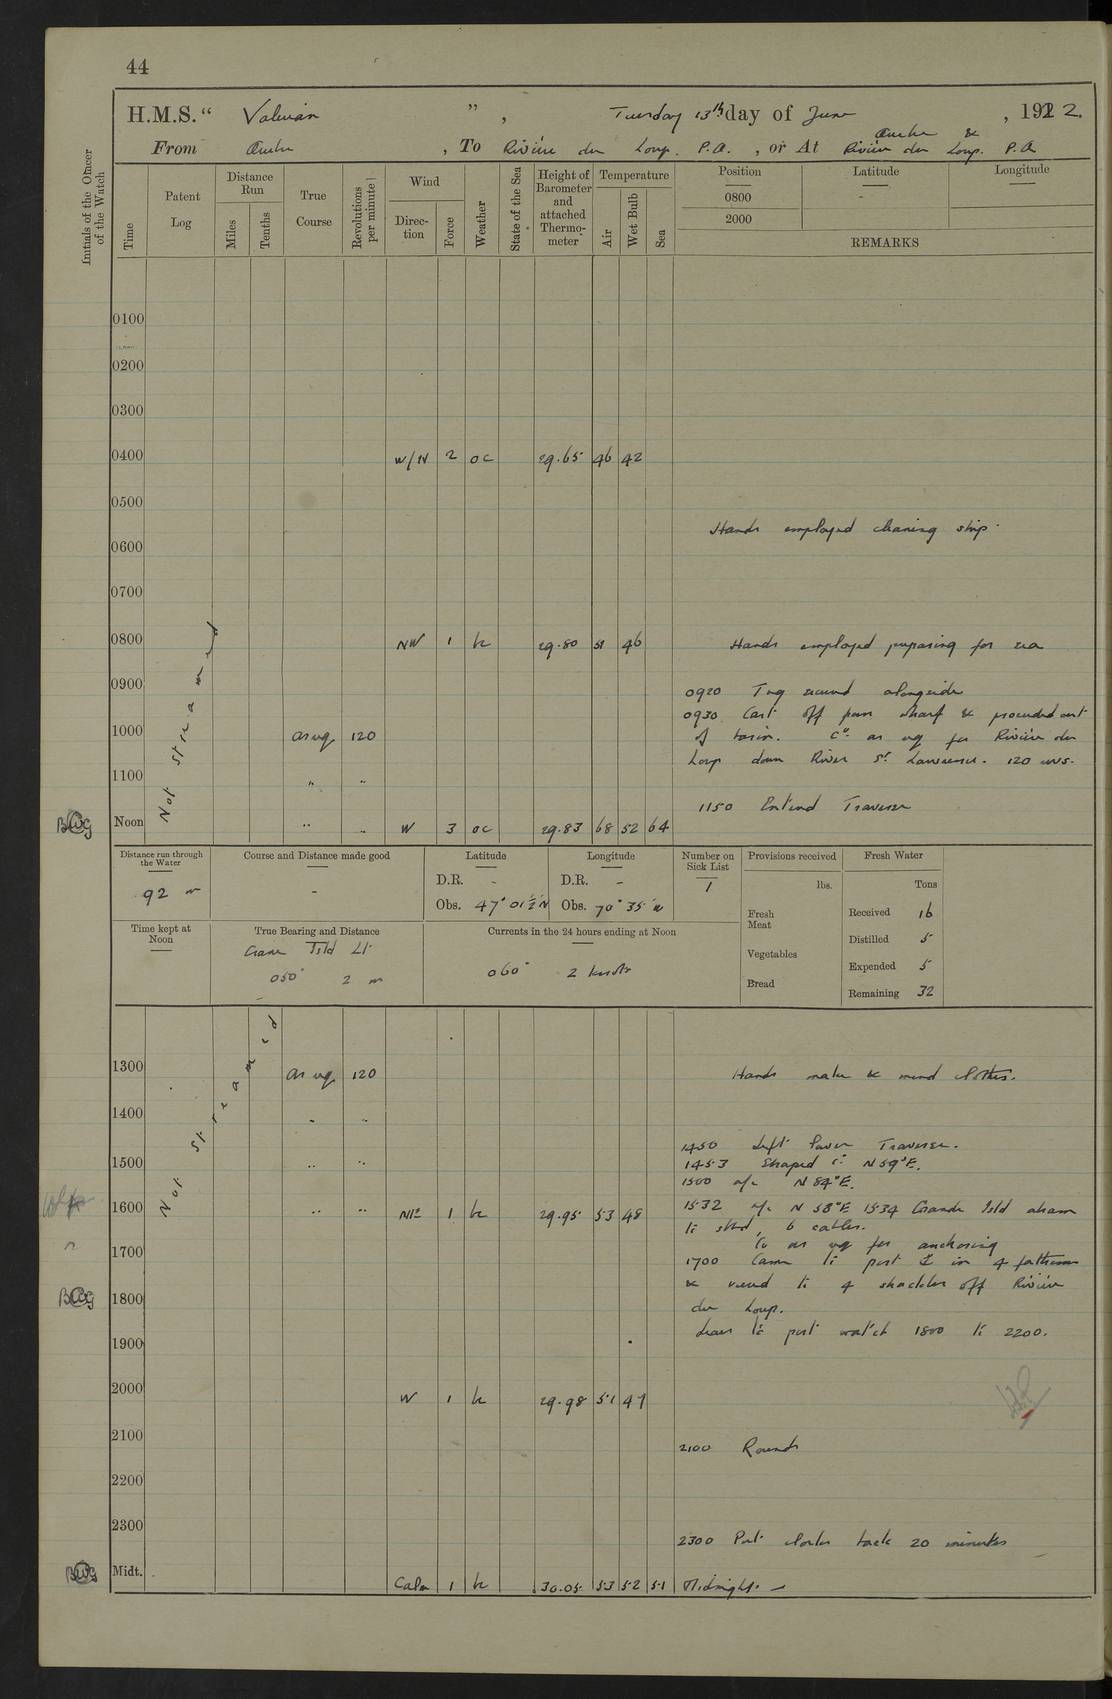 44
H.M.S. " Valerian " , Tuesday 13th day of June , 1922.
From Quebec , To Rivière du Loup. P.Q. , or At Quebec & Rivière du Loup. P.Q
Initials of the Officer of the Watch
Time
Patent Log
Distance Run
Miles
Tenths
True Course
Revolutions per minute
Wind
Direction
Force
Weather
State of the Sea
Height of Barometer and attached Thermometer
Temperature
Air
Wet Bulb
Sea
Position
Latitude
Longitude
0800 -
2000
REMARKS
0100
0200
0300
0400 W/N 2 oc 29.65 46 42
0500
Hands employed cleaning ship.
0600
0700
0800 NW 1 bc 29.80 51 46 Hands employed preparing for sea
Not streamed
0900 0920 Tug secured alongside
0930 Cast off from wharf & proceeded out
1000 as req 120 of basin. Co. as req for Rivière du
Loup down River St Lawrence. 120 revs.
1100 " "
1150 Entered Traverse
BWG Noon " " W 3 oc 29.83 68 52 64
Distance run through the Water
92 m
Course and Distance made good
-
Latitude
D.R. -
Obs. 47° 01½' N
Longitude
D.R. -
Obs. 70° 35' W
Number on Sick List
1
Provisions received
lbs.
Fresh Meat
Vegetables
Bread
Fresh Water
Tons
Received 16
Distilled 5
Expended 5
Remaining 32
Time kept at Noon
True Bearing and Distance
Crane Isld Lt
050° 2 m
Currents in the 24 hours ending at Noon
060° 2 knots
Not Streamed
1300 as req 120 Hands make & mend clothes.
1400 " "
1450 Left Lower Traverse.
1500 " " 1453 Shaped co N 59°E.
1500 a/c N 84°E.
1600 " " NE 1 bc 29.95 53 48 1532 a/c N 58°E 1534 Grande Isld abeam
to stbd, 6 cables.
Co as req for anchoring
1700 1700 Came to port in 4 fathoms
& veered to 4 shackles off Rivière
BWG 1800 du Loup.
Leave to port watch 1800 to 2200.
1900
2000 W 1 bc 29.98 51 47
2100 2100 Rounds
2200
2300 2300 Put clocks back 20 minutes
BWG Midt. Calm 1 bc 30.05 53 52 51 Midnight. -